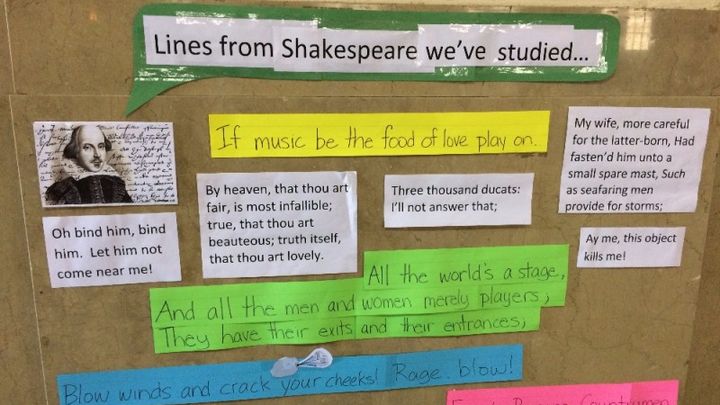 Lines from Shakespeare we've studied...
If music be the food of love play on.
My wife, more careful
for the latter-born, Had
fasten'd him unto a
small spare mast, Such
as seafaring men
provide for storms;
By heaven, that thou art
fair, is most infallible;
true, that thou art
beauteous; truth itself,
that thou art lovely.
Three thousand ducats:
I'll not answer that;
Oh bind him, bind
him. Let him not
come near me!
Ay me, this object
kills me!
All the world's a stage,
And all the men and women merely players;
They have their exits and their entrances;
Blow winds and crack your cheeks! Rage. blow!
Countrymen